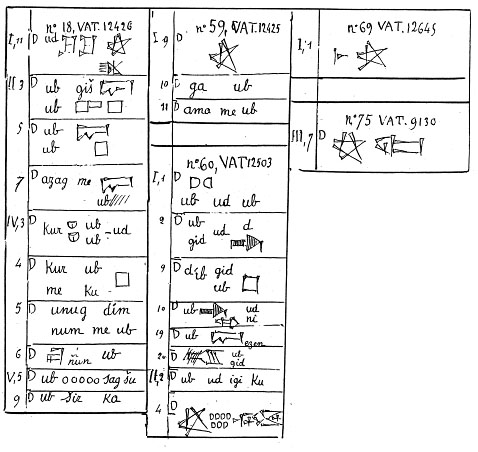 n° 18, VAT. 12426
I, 11 D ud
II 3 D ub giš
ub
5 D ub
ub
7 D azag me
ub
IV, 3 D Kur ub - ud
ub
4 D Kur ub
me Ku
5 D unug dím
num me ub
6 D nun ub
V, 5 D ub ooooo sag šu
9 D ub sir Ka
n° 59, VAT. 12425
I 9 D
10 D ga ub
11 D ama me ub
n° 60, VAT 12503
I, 1 D DD
ub ud ub
2 D ub ud d
gid
9 D dib gid
ub
10 D ub ud
ni
19 D ub ezen
20 D ub
gid
II, 2 D ub ud igi Ku
4 D
n° 69 VAT. 12645
I, 1
n° 75 VAT. 9130
III, 7 D